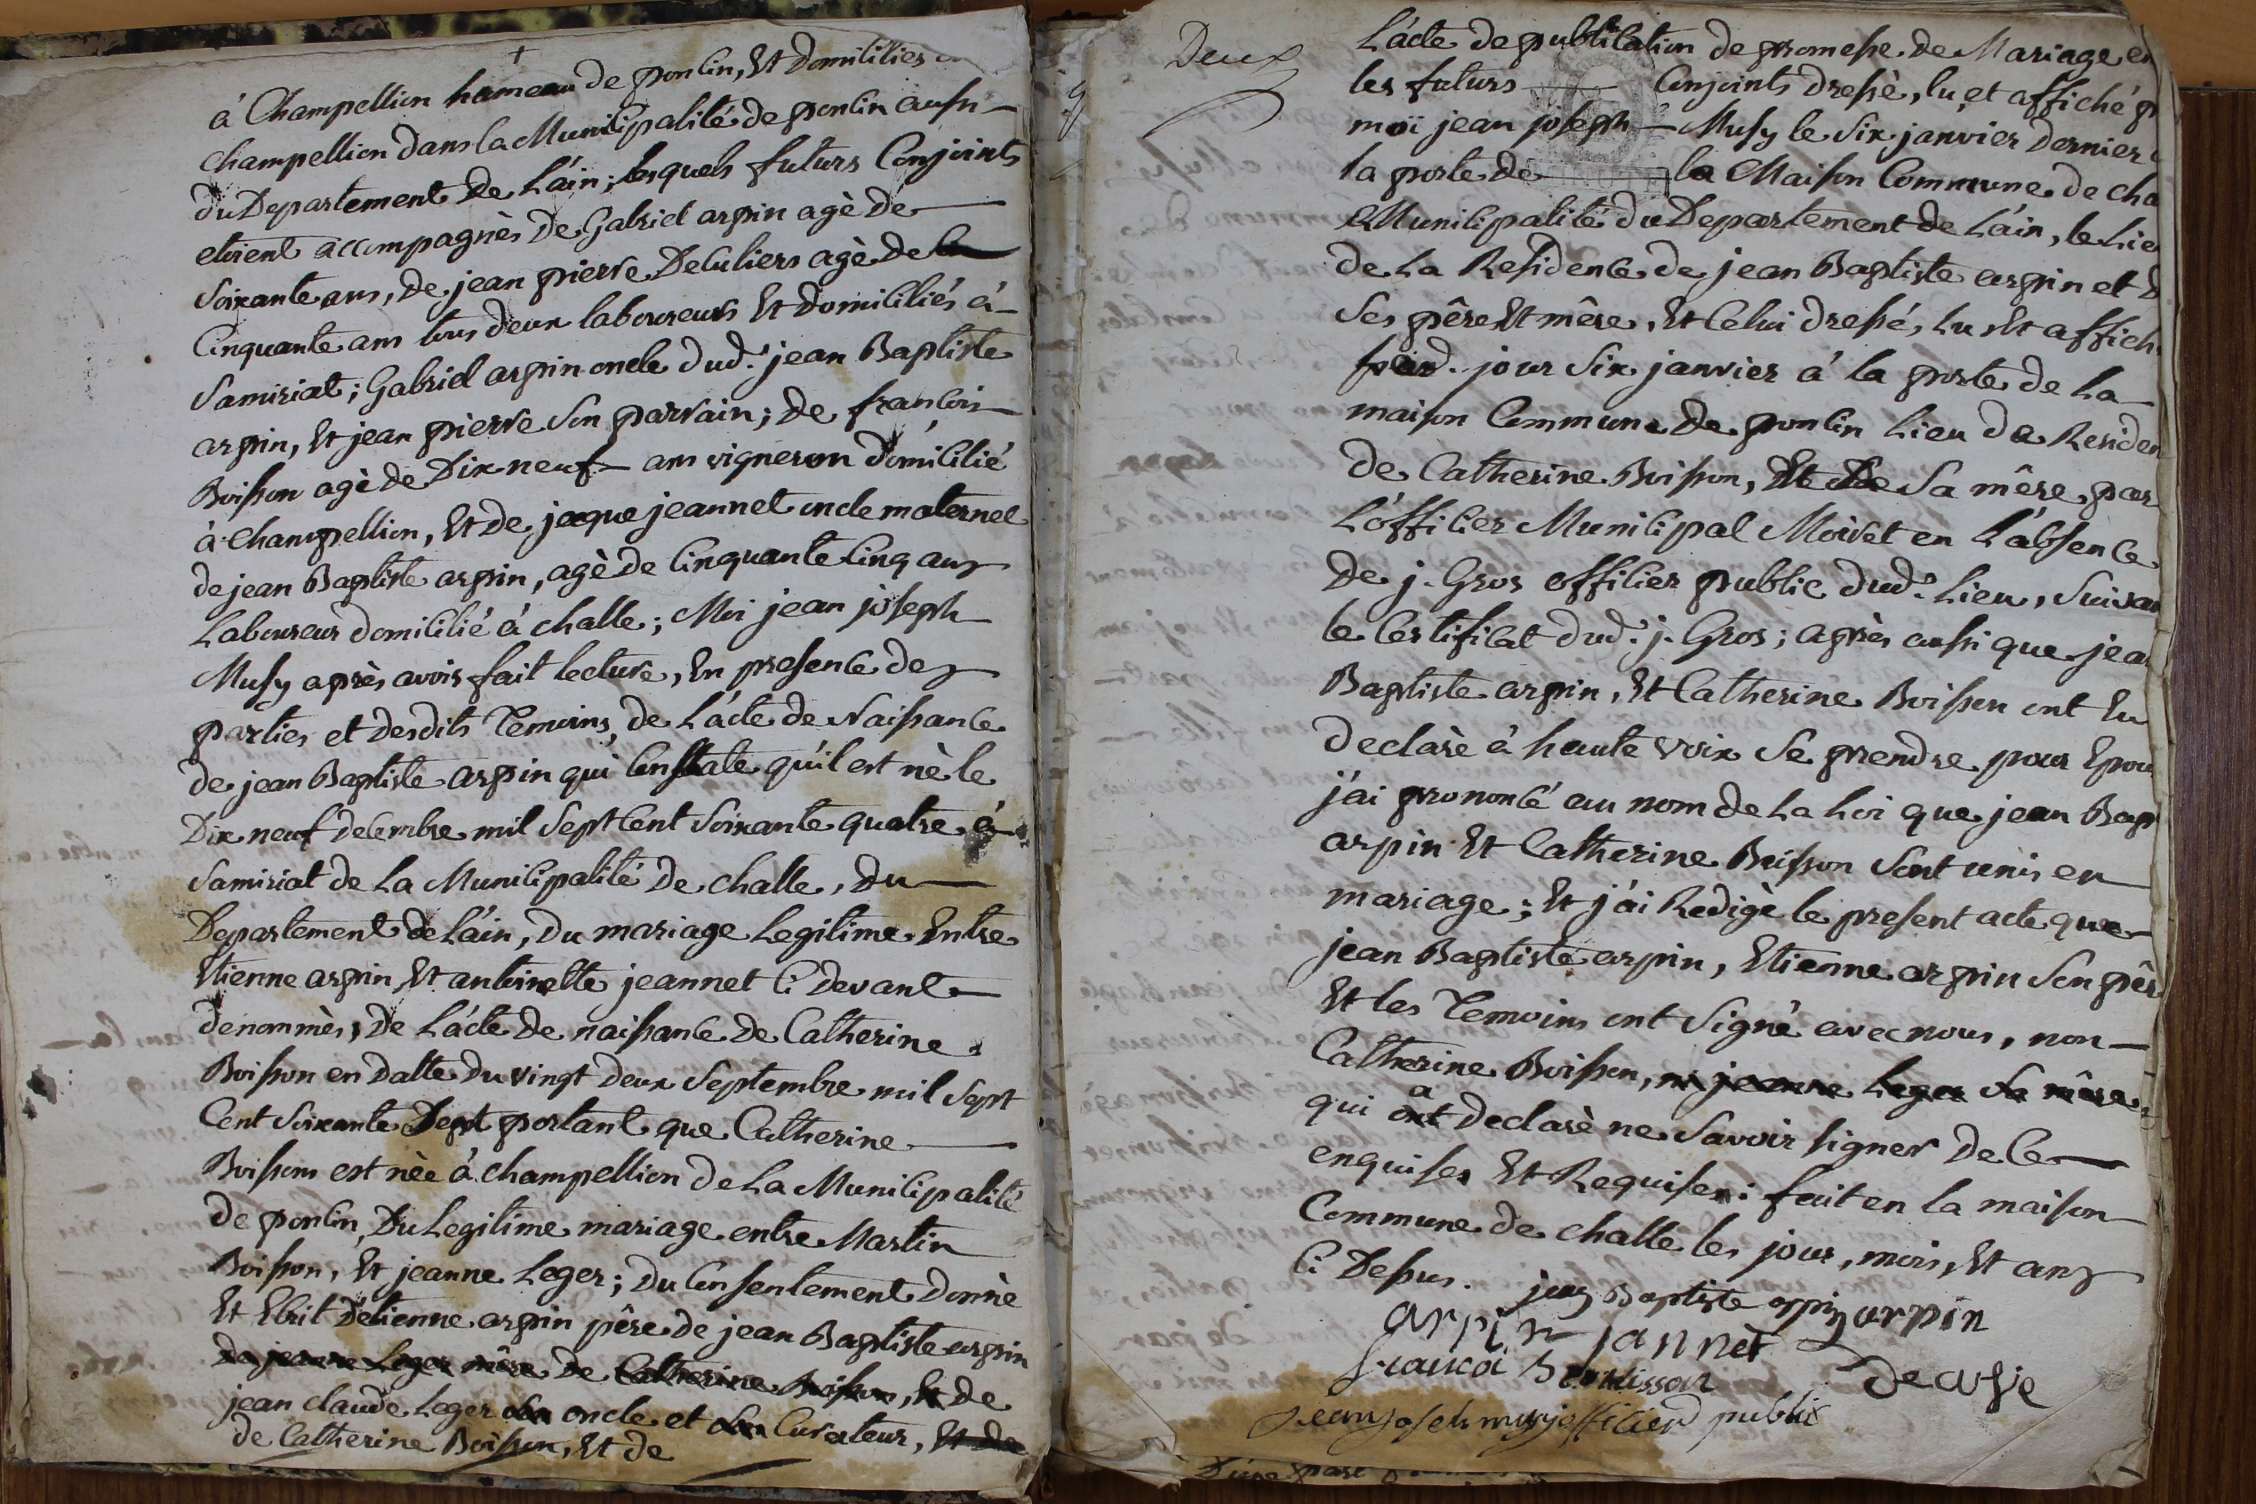 à Champellion hameau de poncin, Et Domicilies
Champellion dans la Municipalité de poncin aussi
du Departement De L'áin; lesquels futurs Conjoints
etoient accompagnès De Gabriel arpin agè De
Soixante ans, De jean pierre Deculiers agè De
Cinquante ans tous deux laboureurs Et Domiciliés à
Samiriat; Gabriel arpin oncle dud. jean Baptiste
arpin, Et jean pierre Son parrain; de francois
Boisson agè de Dix neuf ans vigneron Domicilié
à Champellion, Et de jacque jeannet oncle maternel
de jean Baptiste arpin, agè De Cinquante Cinq ans
Laboureur domicilié à challe; Moi jean joseph
Musy après avoir fait lecture, En presence des
parties et desdits Temoins, de L'ácte de Naissance
de jean Baptiste arpin qui Constate qu'il est nè le
Dix neuf decembre mil Sept Cent Soixante quatre à
Samiriat de La Municipalité De challe, du
Departement de L'áin, du mariage Legitime Entre
Etienne arpin Et antoinette jeannet Ci Devant
denommès, De L'ácte De naissance De Catherine
Boisson en Datte du vingt Deux Septembre mil Sept
Cent Soixante Sept portant que Catherine
Boisson est née à champellion de La Municipalité
De poncin, Du Legitime mariage entre Martin
Boisson, Et jeanne Leger; du Consentement Donnè
Et Ecrit D'etienne arpin père de jean Baptiste arpin
de jeanne Leger mère de Catherine Boisson, Et de
jean claude Leger oncle et Curateur, Et de
de Catherine Boisson, Et de
Deux
L'ácte de publication de promesse de Mariage
les futurs Conjoints dressè, lu, et affiché
moi jean joseph Musy le Six janvier Dernier
la porte de la Maison Commune de
Municipalité du Departement de L'áin, le
de La Residence de jean Baptiste arpin et
Ses père Et mère, Et Celui dressé, Lu Et
jour Six janvier à la porte de La
maison Commune De poncin Lieu de
de Catherine Boisson, Et De Sa mère par
L'officier Municipal Moidet en L'ábsence
De j. Gros officier public dud. Lieu,
le Certificat dud. j. Gros; après aussi que
Baptiste arpin, Et Catherine Boisson ont Eu
declarè à haute voix Se prendre pour
j'ai prononcé au nom de La Loi que jean
arpin Et Catherine Boisson Sont unis en
mariage; Et j'ái Redigè le present acte que
jean Baptiste arpin, Etienne arpin Son
Et les Temoins ont Signé avec nous, non
Catherine Boisson, ni jeanne Leger Sa mère
a
qui ont declarè ne Savoir Signer de Ce
enquises Et Requises: fait en la maison
Commune de challe les jour, mois, Et ans
Ci Dessus. jean Baptiste arpin arpin
arpin jannet
Boisson
public